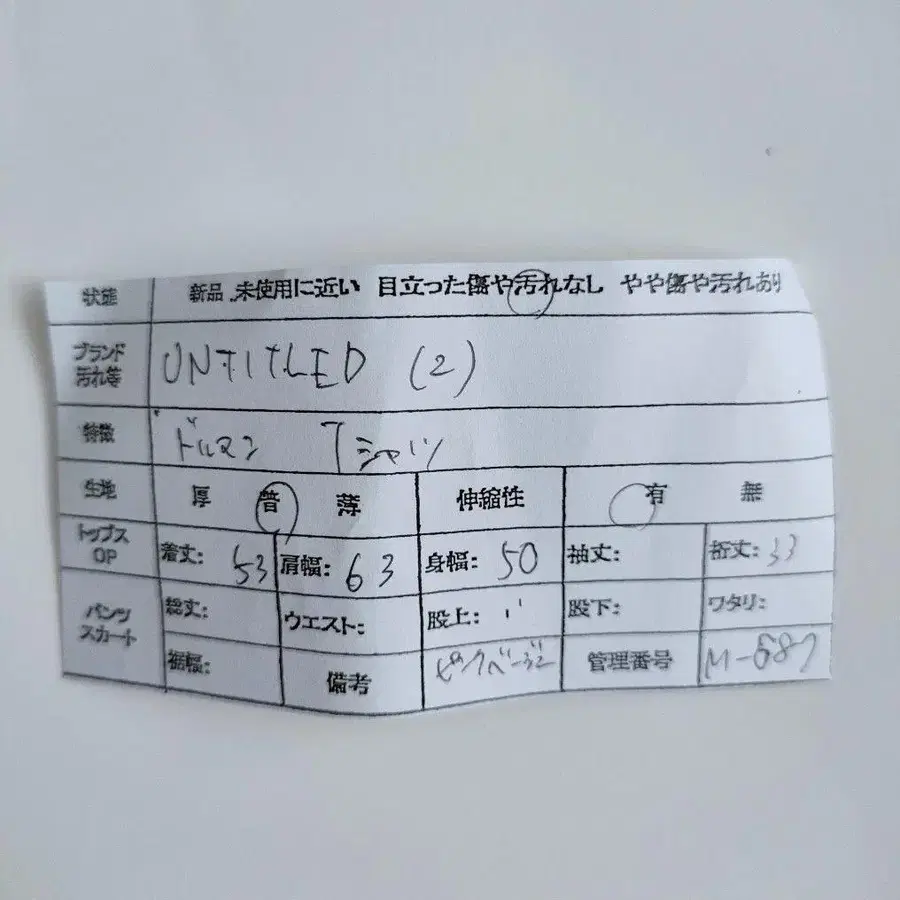 状態 新品 未使用に近い 目立った傷や汚れなし やや傷や汚れあり
ブランド
汚れ等
UNTITLED (2)
特徴 ドルマン Tシャツ
生地 厚 普 薄 伸縮性 有 無
トップス
OP
着丈: 53 肩幅: 63 身幅: 50 袖丈: 裄丈: 33
パンツ
スカート
総丈: ウエスト: 股上: 股下: ワタリ:
裾幅: 備考 ピンクベージュ 管理番号 M-687